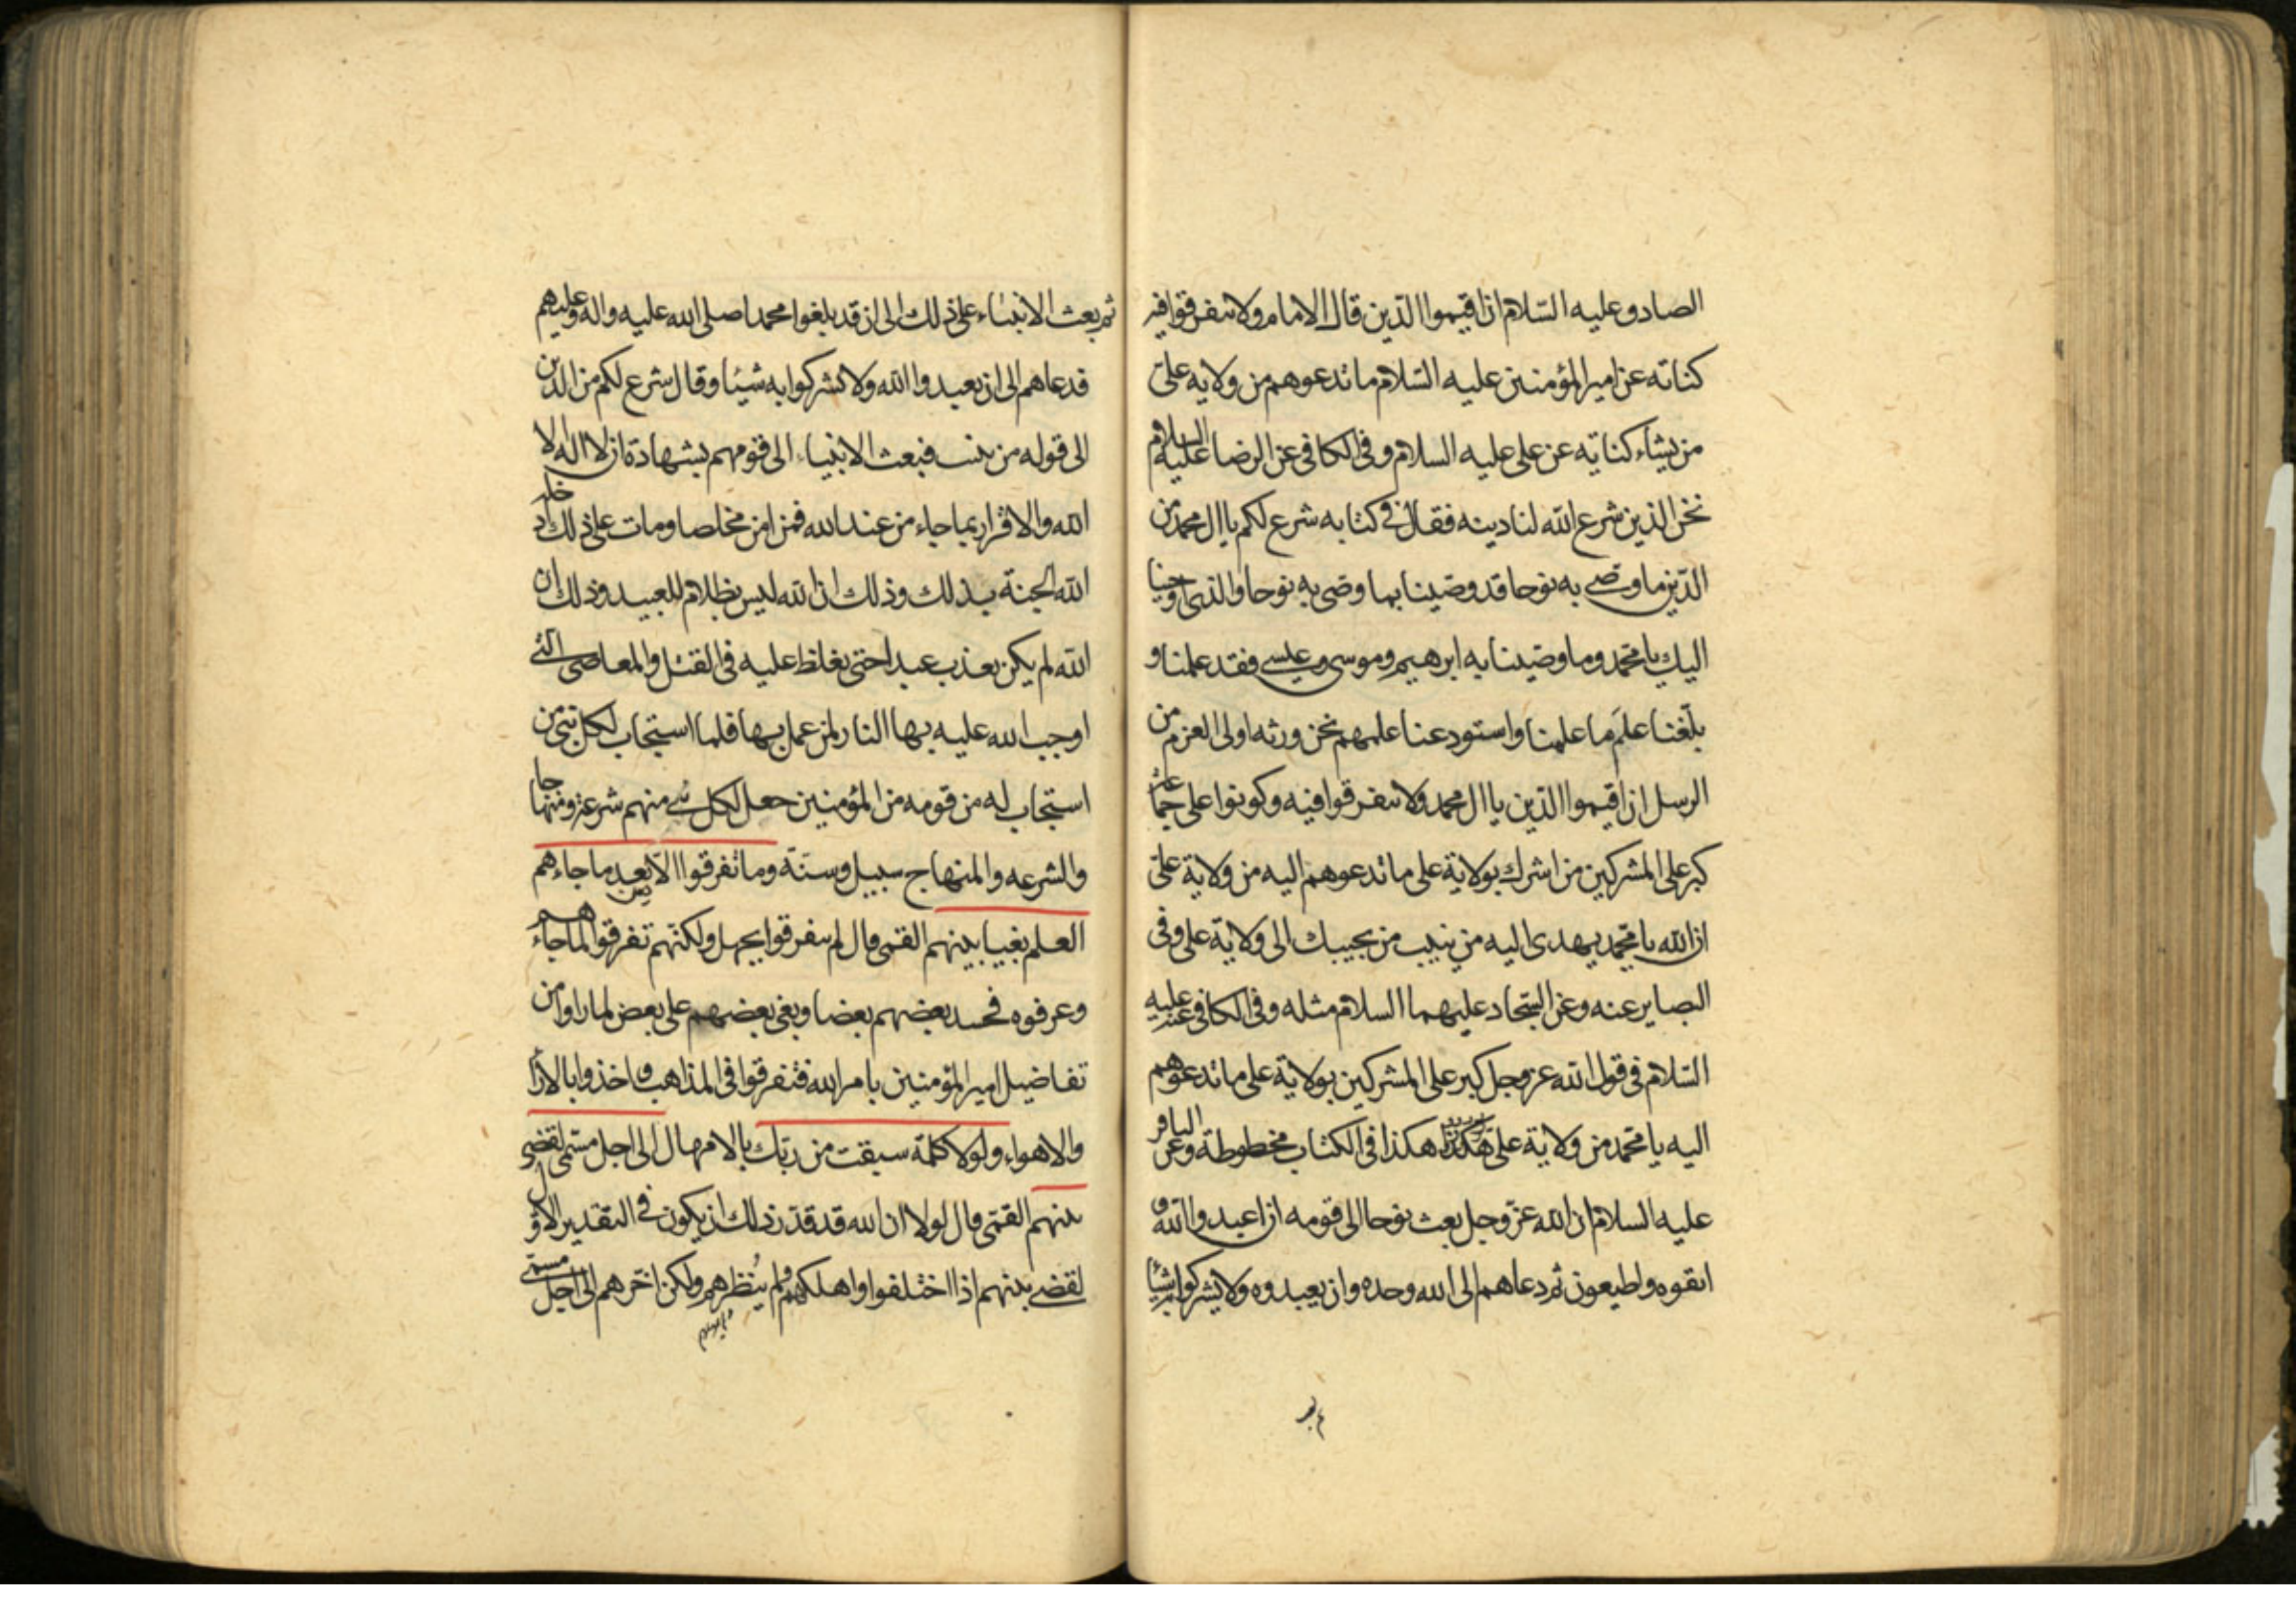 الصادق عليه السّلام ان اقيموا الدّين قال الامام ولا تتفرقوا فيه
كناته عن امير المؤمنين عليه السّلام ما تدعوهم من ولاية علىّ
من يشاء كناية عن على عليه السلام وفى الكافى عن الرضا عليه السلام
نحن الذين شرع الله لنا دينه فقال فى كتابه شرع لكم يا ال محمد من
الدّين ما وصى به نوحا قد وصّينا بما وصّى به نوحا والذى اوحينا
اليك يا محمد وما وصّينا به ابرهيم وموسى وعيسى فقد علمنا و
بلّغنا علَم ما علمنا واستودعنا علمهم نحن ورثه اولى العزم من
الرسل ان اقيموا الدّين يا ال محمد ولا تتفرقوا فيه وكونوا على جماعة
كبر على المشركين من اشرك بولاية على ما تدعوهم اليه من ولاية علىّ
ان الله يا محمد يهدى اليه من ينيب من يجيبك الى ولاية على وفى
البصاير عنه وعن السّجاد عليهما السلام مثله وفى الكافى عنه عليه
السّلام فى قول الله عز وجل كبر على المشركين بولاية على ما تدعوهم
اليه يا محمد من ولاية على هكذا هكذا فى الكتاب مخطوطة وعن الباقر
عليه السلام ان الله عزّ وجل بعث نوحا الى قومه ان اعبدوا الله و
اتقوه واطيعون ثم دعاهم الى الله وحده وان يعبدوه ولا يشركوا به شيئا
ثم بعث الانبياء على ذلك الى ان قد بلغوا محمدا صلى الله عليه واله وعليهم
فدعاهم الى ان يعبدوا الله ولا تشركوا به شيئا وقال شرع لكم من الدين
الى قوله من ينيب فبعث الانبياء الى قومهم بشهادة ان لا اله الا
الله والاقرار بما جاء من عند الله فمن امن مخلصا ومات على ذلك ادخله
الله الجنة بذلك وذلك ان الله ليس بظلام للعبيد وذلك ان
الله لم يكن يعذب عبدا حتى يغلظ عليه فى القتل والمعاصى التى
اوجب الله عليه بها النار لمن عمل بها فلما استجاب لكل نبى من
استجاب له من قومه من المؤمنين جعل لكل نبى منهم شرعة ومنهاجا
والشرعه والمنهاج سبيل وسنّة وما تفرقوا الّا من بعد ما جاءهم
العلم بغيا بينهم القمى قال لم يتفرقوا بجهل ولكنّهم تفرقوا لما جاءهم
وعرفوه فحسد بعضهم بعضا وبغى بعضهم على بعض لما راوا من
تفاضيل امير المؤمنين بامر الله فتفرقوا فى المذاهب واخذوا بالارا
والاهواء ولولا كلمة سبقت من ربّك بالامهال الى اجل مسمّى لقضى
بينهم القمّى قال لولا ان الله قد قدّر ذلك ان يكون فى التقدير الاوّل
لقضى بينهم اذا اختلفوا واهلكهم ولم يُنظرهم ولكن اخّرهم الى اجل مسمّى